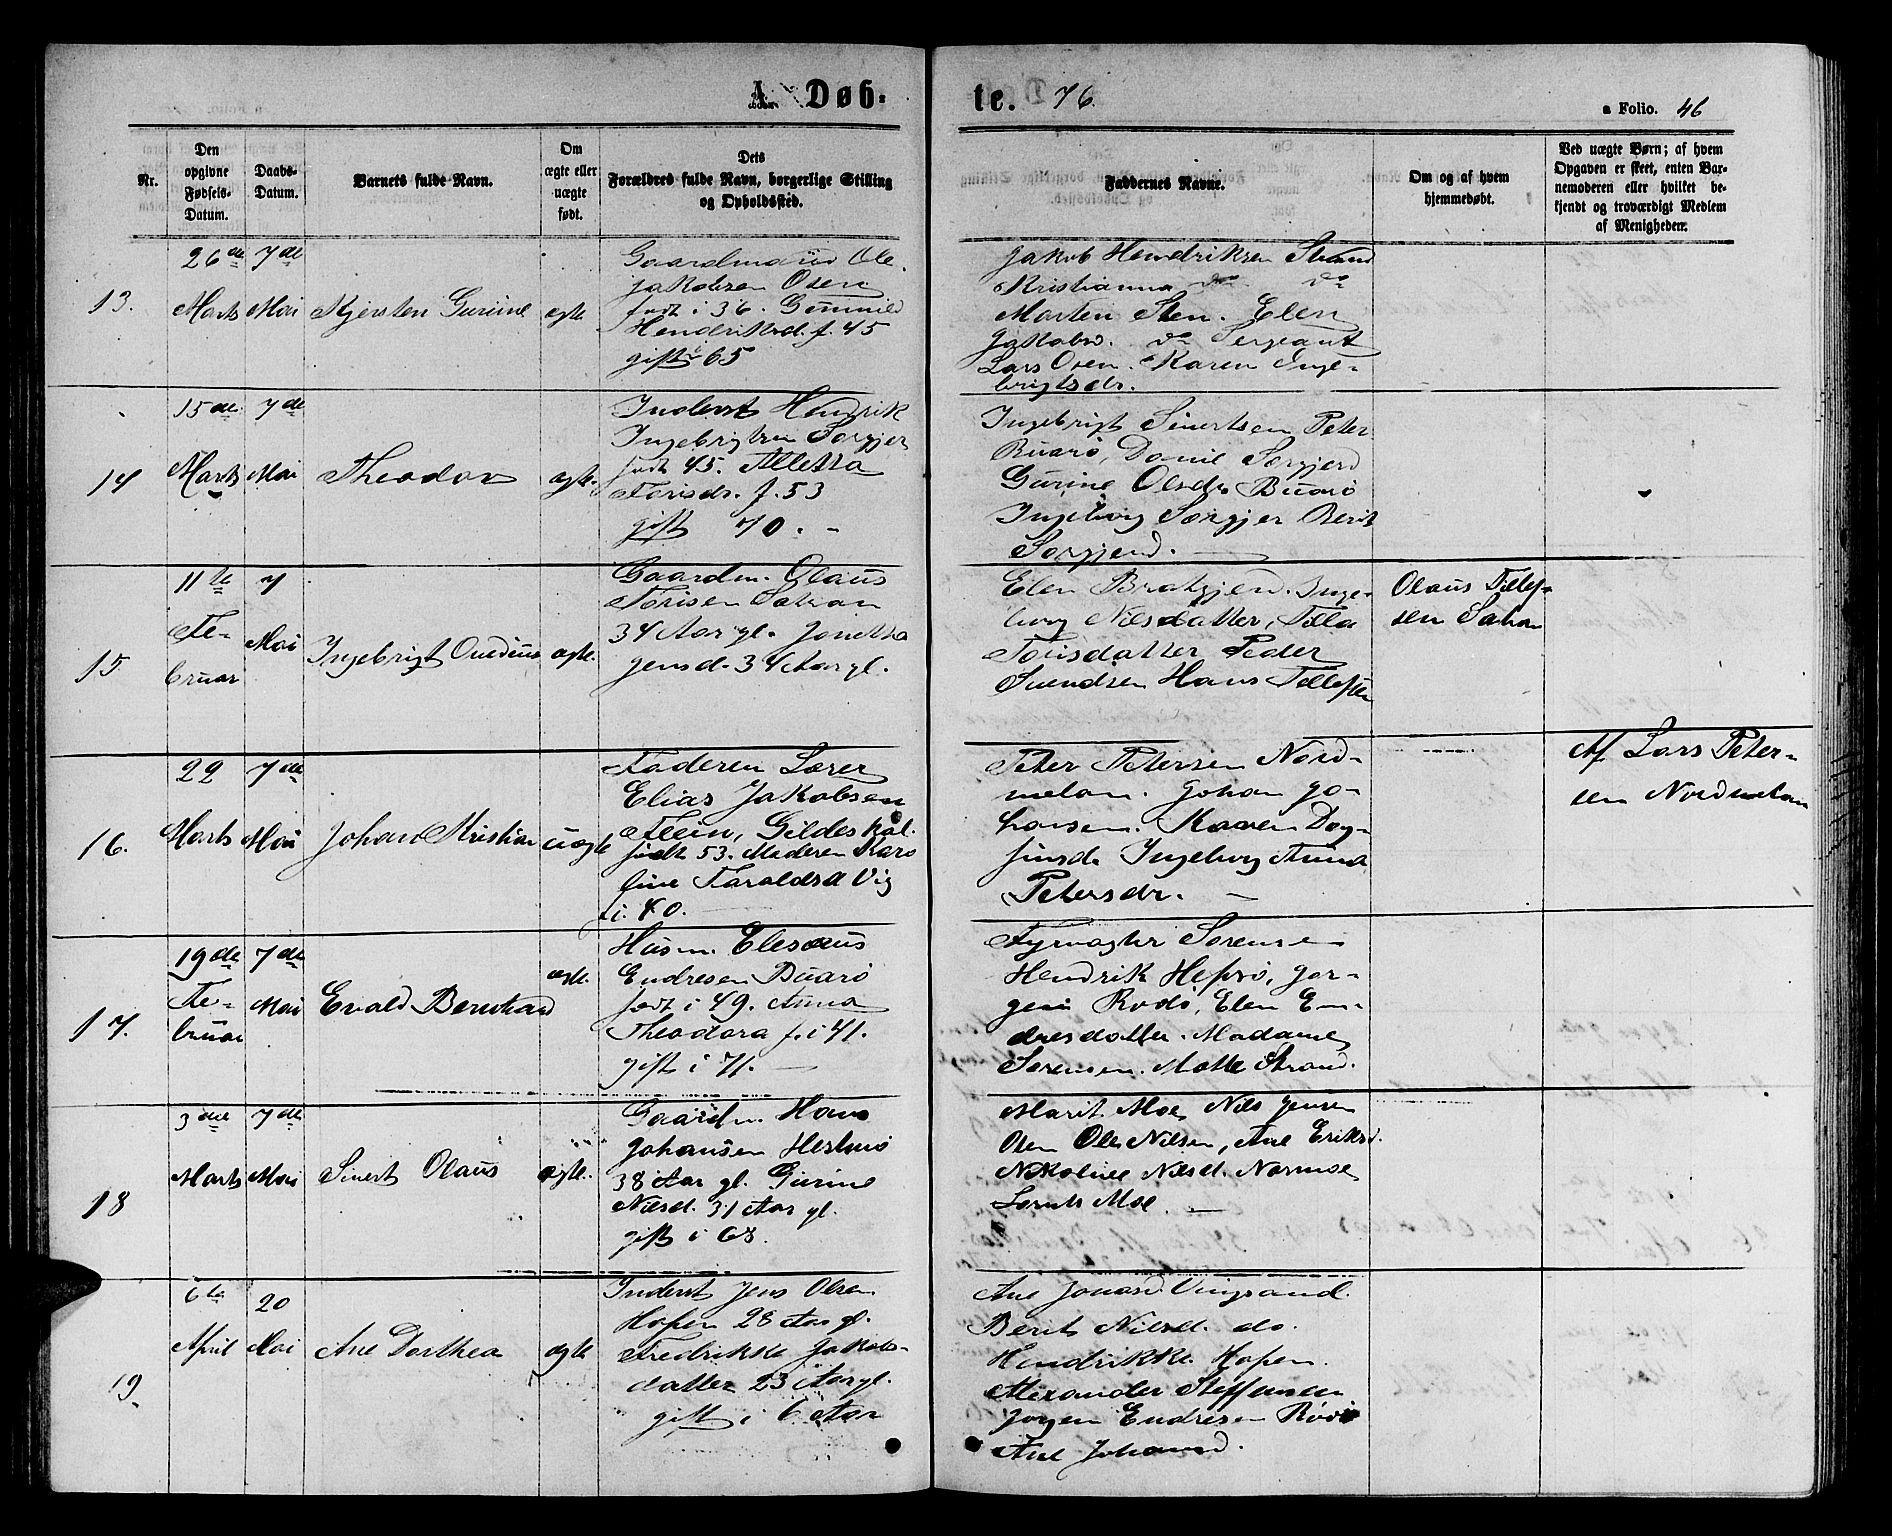 A. Døb-
te. 76.
a Folio. 46
Nr.
Den opgivne Fødsels-Datum.
Daabs-Datum.
Barnets fulde Navn.
Om ægte eller uægte født.
Dets Forældres fulde Navn, borgerlige Stilling og Opholdssted.
Faddernes Navne.
Om og af hvem hjemmedøbt.
Ved uægte Børn; af hvem Opgaven er skeet, enten Barnemoderen eller hvilket bekjendt og troværdigt Medlem af Menigheden.
13.
26de Marts
7de Mai
Kjersten Gurine
ægte
Gaardmand Ole
Jakobsen Osen
født i 36. Gunnild
Hendriksd. f. 45
gift i 65
Jakob Hendriksen Strand
Kristianna do do
Morten Sten. Elen
Jakobsd. do Sergeant
Lars Osen. Karen Inge-
brigtsdr.
14
15de Marts
7de Mai
Theodor
ægte.
Inderst Hendrik
Ingebrigtsen Sørgjer
født 45. Alletta
Torisdr. f. 53
gift 70. -
Ingebrigt Sivertsen Peter
Buarø, Daniel Sørgjerd
Gurine Olsdr. Buarø
Ingeborg Sørgjer Berit
Sørgjerd.
15
11te Februar
7 Mai
Ingebrigt Ovedius
ægte.
Gaardm. Olaus
Torisen Sahan
34 Aar gl. Jonetta
Jensd. 34 Aar gl.
Elen Brakgjerd. Inge-
borg Nilsdatter,
Torisdatter Peder
Svendsen Hans Tollefsen
Olaus Tollef-
sen Sahan
16.
22 Marts
7de Mai
Johan Kristian
uægte
Faderen Lærer
Elias Jakobsen
Flein, Gildeskaal.
født 53. Moderen Karo
line Haraldsd Vig
i 40.
Peter Petersen Nord-
melan. Johan Jo-
hansen. Karen Dag-
finsd. Ingeborg Anna
Petersdr.
Af Lars Peter-
sen Nordmelan
17.
19de Februar
7de Mai
Evald Bernhard
ægte.
Husm. Elesæus
Endresen Buarø
født i 49. Anna
Theodora f. i 41.
gift i 71.
Fyrvogter Sørensen
Hendrik Hepsø, Jør-
gen Rodø, Elen En-
dresdatter. Madame
Sørensen. Mette Strand.
18
3die Marts
7de Mai
Sivert Olaus
ægte.
Gaardm. Hans
Johansen Hestnes
38 Aar gl. Gurine
Nilsd. 31 Aar gl.
gift i 68.
Marit Moe Nils Jensen
Osen Ole Nilsen, Ane Eriksd.
Nikoline Nilsd. Normoe
Lornts Moe.
19.
6te April
20 Mai
Ane Dorthea
ægte
Inderst Jens Olsen
Hopen 28 Aar gl.
Fredrikke Jakobs-
datter 23 Aar gl.
gift i 6 Aar
Ane Jonasd Vingsand.
Berit Nilsd. do.
Hendrikke Hopen.
Alexander Steffensen
Jørgen Endresen Rødø
Ane Johansd.